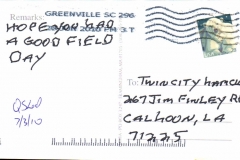 Remarks
GREENVILLE SC 296
2010 PM 3 T
HOPE YOU HAD
A GOOD FIELD
DAY
QSL'd
7/3/10
To:
TWIN CITY HAM CLUB
267 JIM FINLEY RD
CALHOUN, LA
71225